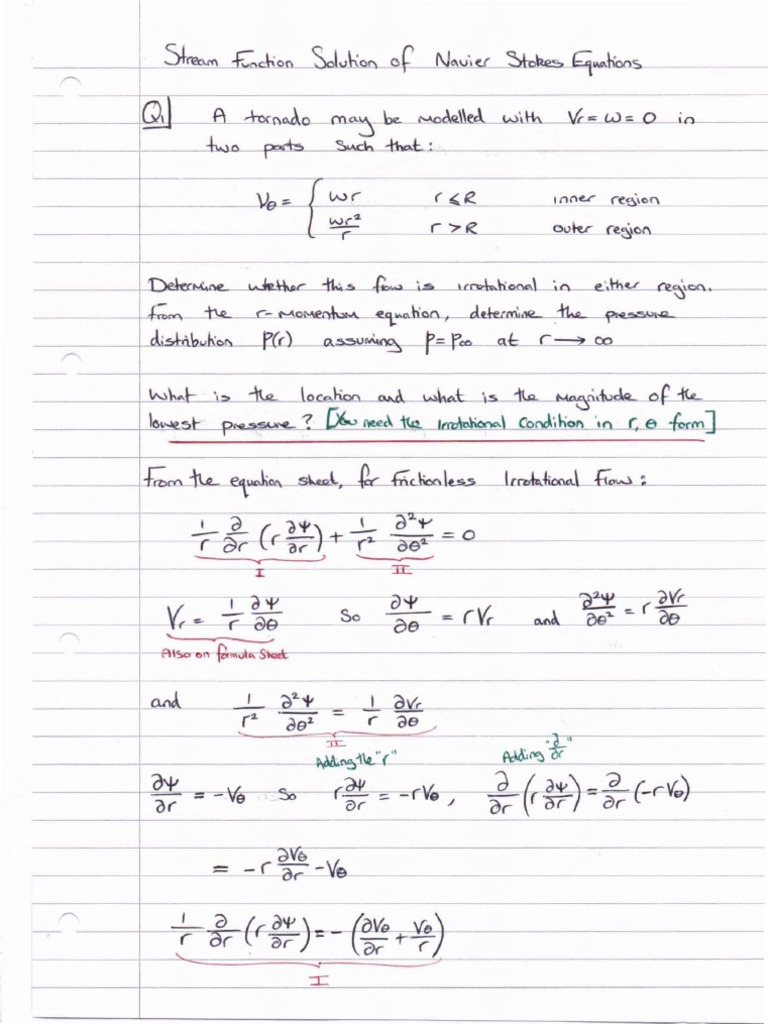 Stream Function Solution of Navier Stokes Equations
Q1 A tornado may be modelled with Vr = ω = 0 in
two parts such that:
Vθ = { ωr r ≤ R inner region
ωr²/r r > R outer region
Determine whether this flow is irrotational in either region.
From the r-momentum equation, determine the pressure
distribution P(r) assuming p = p∞ at r → ∞
What is the location and what is the magnitude of the
lowest pressure? [You need the Irrotational Condition in r, θ form]
From the equation sheet, for frictionless Irrotational Flow:
1/r ∂/∂r (r ∂Ψ/∂r) + 1/r² ∂²Ψ/∂θ² = 0
I II
Vr = 1/r ∂Ψ/∂θ So ∂Ψ/∂θ = rVr and ∂²Ψ/∂θ² = r ∂Vr/∂θ
Also on formula sheet
and 1/r² ∂²Ψ/∂θ² = 1/r ∂Vr/∂θ
II
Adding the "r" Adding "∂/∂r"
∂Ψ/∂r = -Vθ So r ∂Ψ/∂r = -rVθ, ∂/∂r (r ∂Ψ/∂r) = ∂/∂r (-rVθ)
= -r ∂Vθ/∂r - Vθ
1/r ∂/∂r (r ∂Ψ/∂r) = -(∂Vθ/∂r + Vθ/r)
I